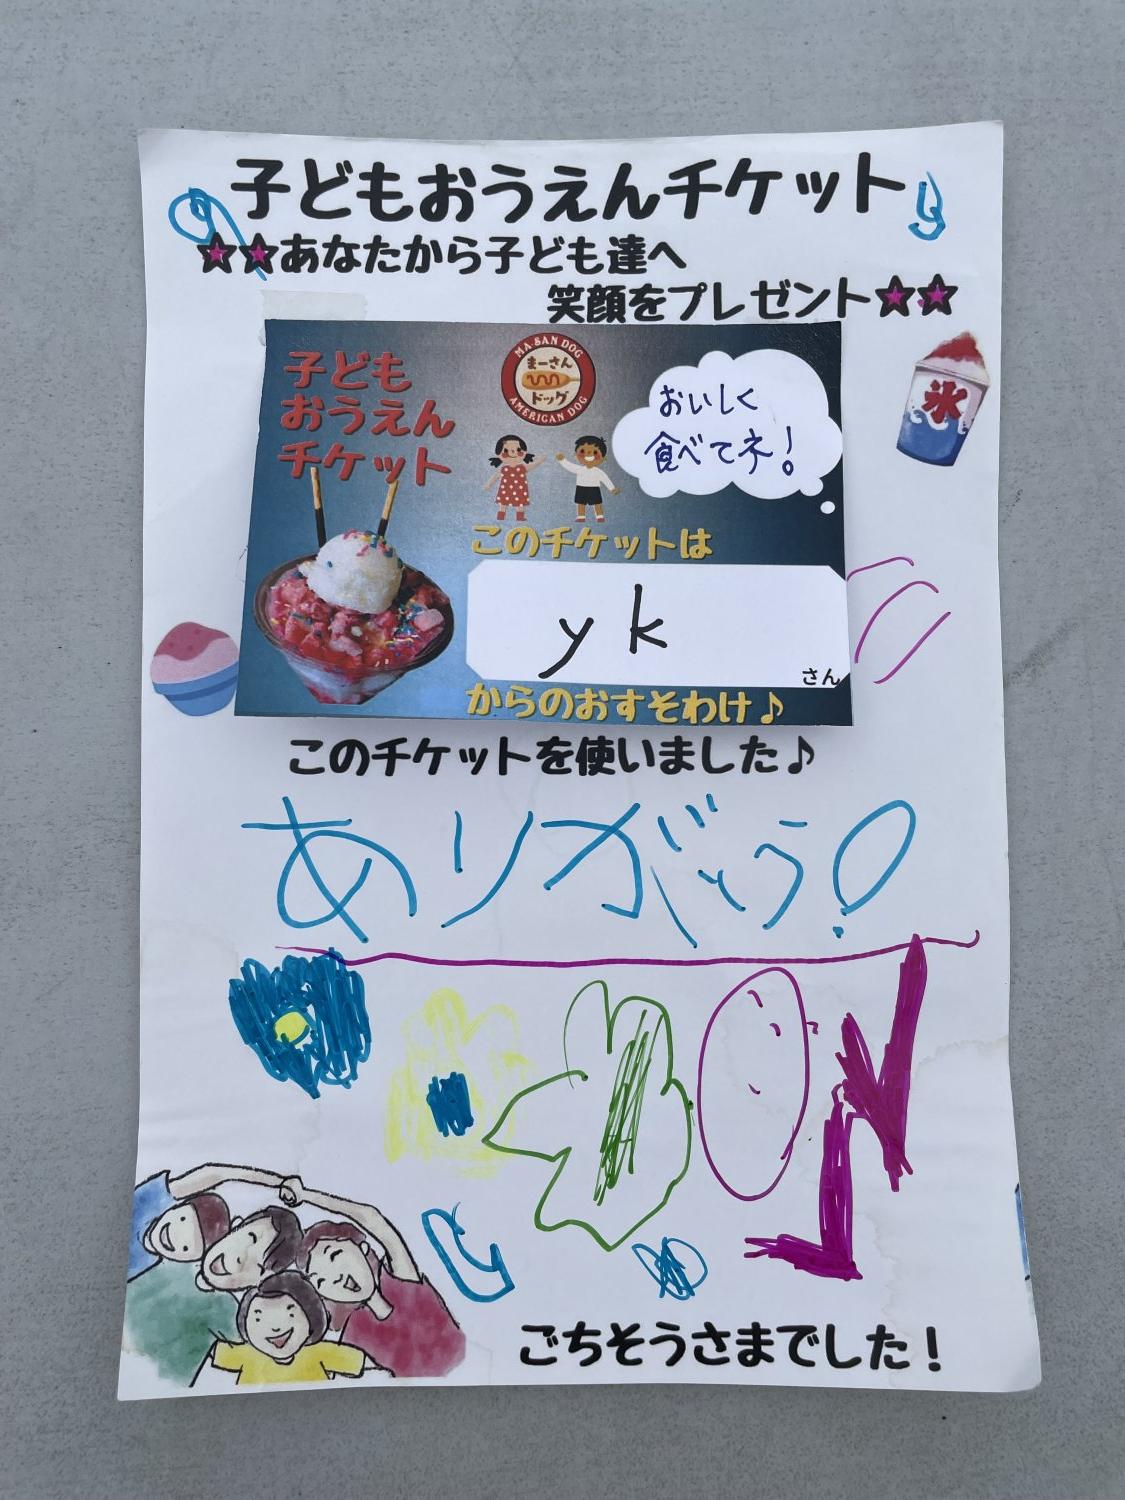 子どもおうえんチケット
☆☆あなたから子ども達へ
笑顔をプレゼント☆☆
氷
子ども
おうえん
チケット
MA.SAN DOG
まーさん
ドッグ
AMERICAN DOG
おいしく
食べてネ!
このチケットは
yk
さん
からのおすそわけ♪
このチケットを使いました♪
ありがとう!
ごちそうさまでした!